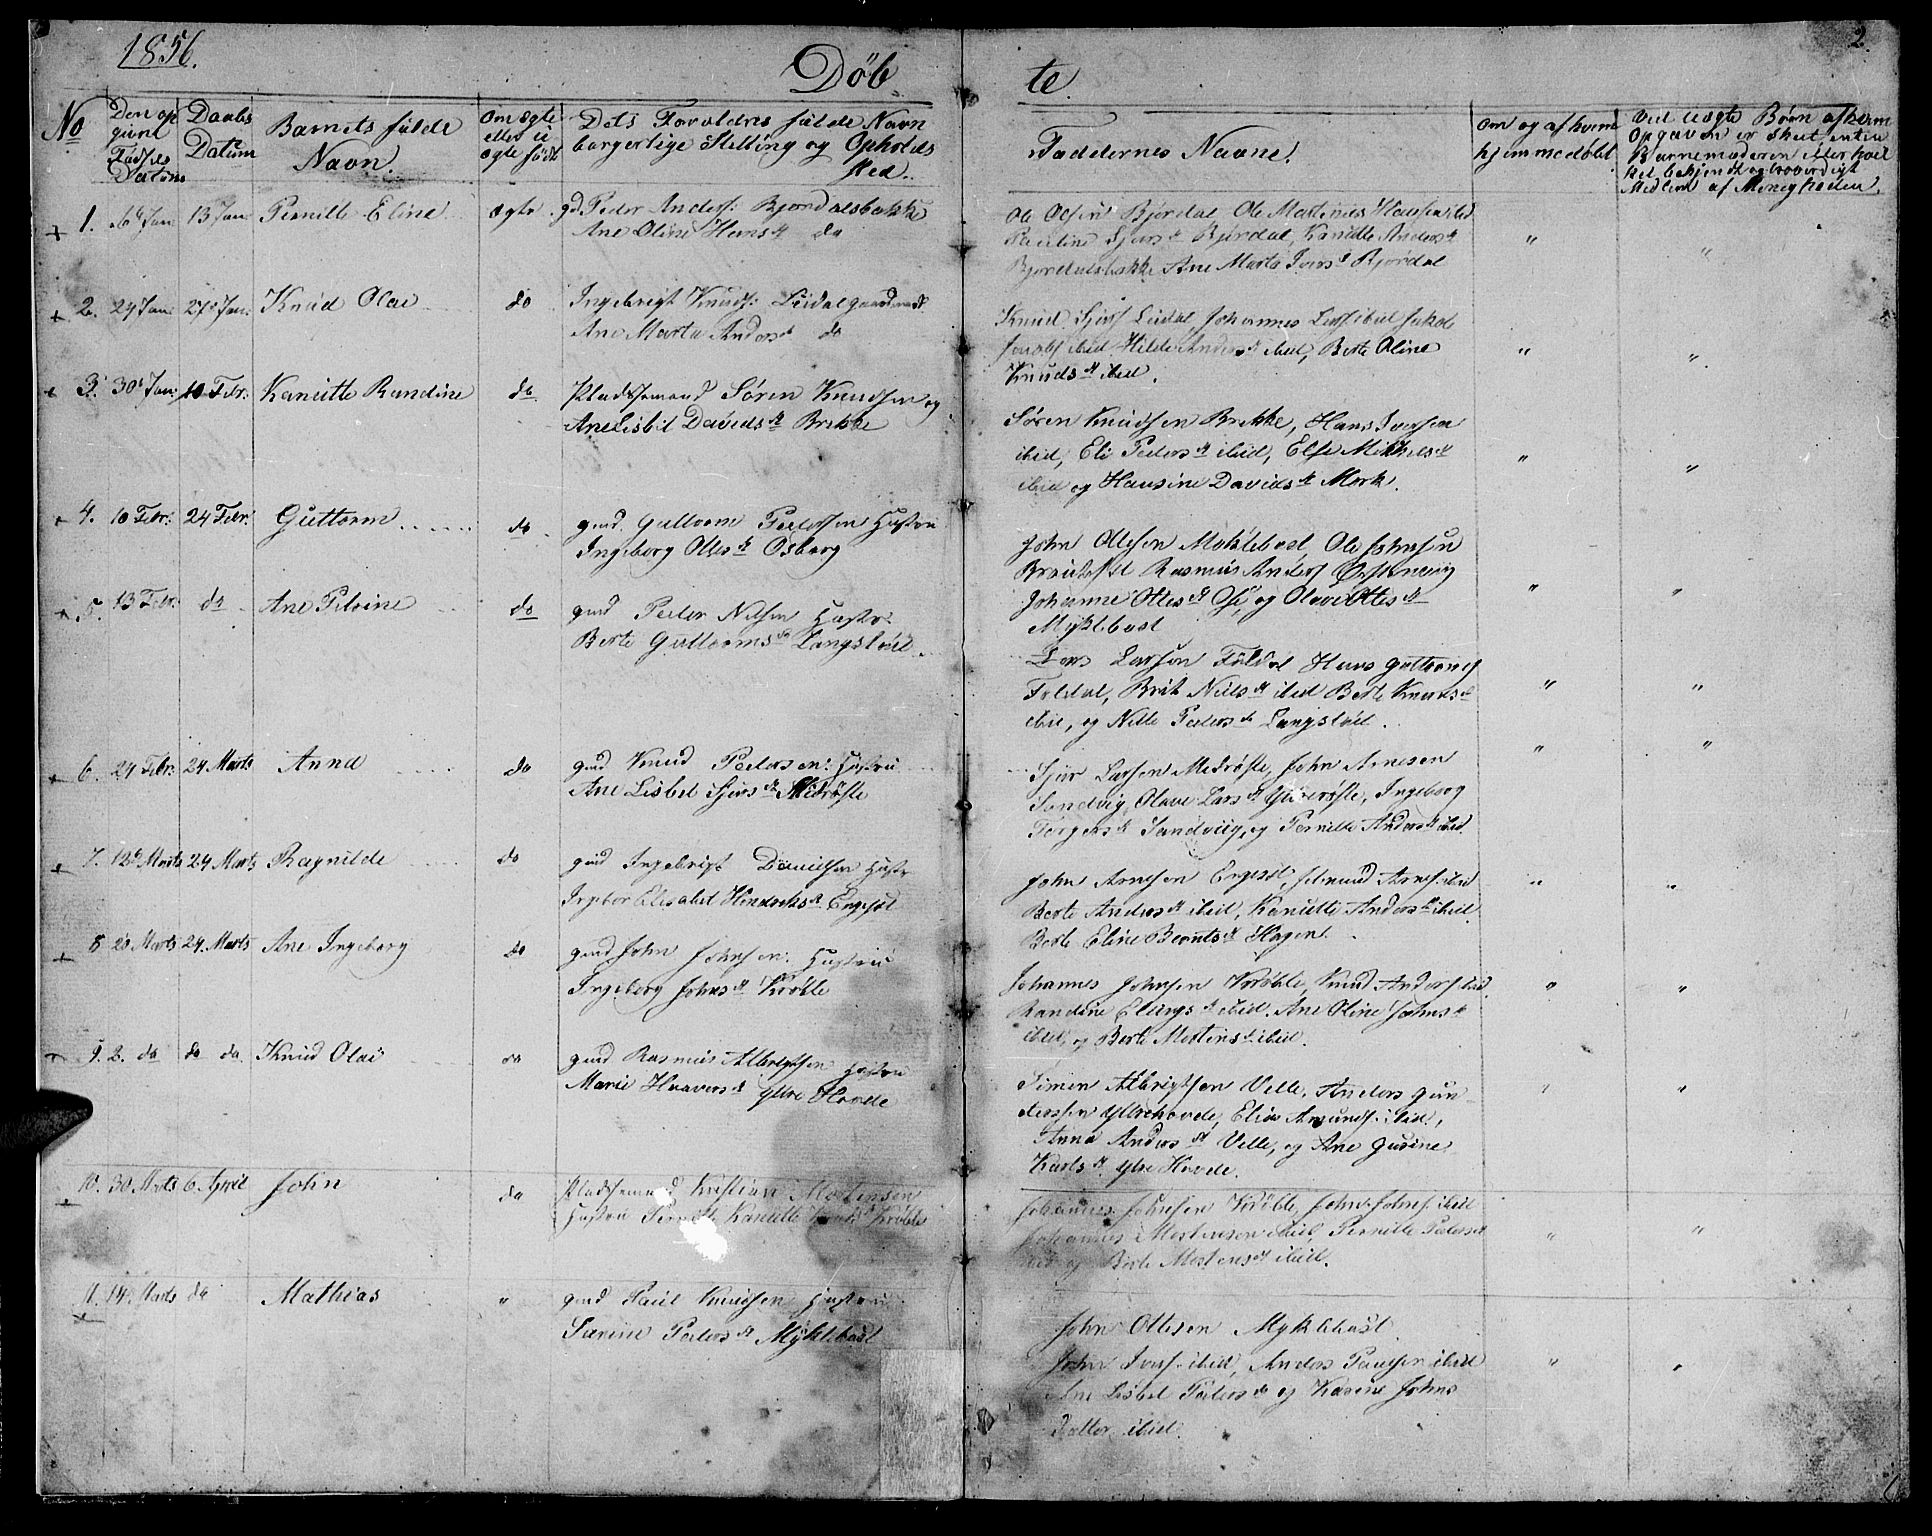 1856.
Døb
te.
2.
No
Den op
givne
Fødsels
Datum
Daabs
Datum
Barnets fulde
Navn.
Om ægte
eller u
ægte født
Dets Forældres fulde Navn
borgerlige Stilling og Opholds
sted.
Faddernes Navne.
Om og af hvem
hjemmedøbt
Ved uægte Børn af hvem
Opgaven er skeet, enten
Barnemoderen eller hvil
ket bekjendt og troværdigt
Medlem af Menigheden.
1. 6te Jan 13 Jan Pernille Eline ægte gd. Peder Anders: Bjordalsbakke
Ane Oline Hans dt do
Ole Olsen Bjørdal Ole Martinus Hansen ibid
Pauline Sjurs dt Bjørdal, Kanutte Anders dt
Bjordalsbakke Ane Marta Ivers dt Bjørdal
2. 24 Jan 27de Jan: Knud Olai do Ingebrigt Knuds: Leidal gaardmand
Ane Marta Anders dt do
Knud Sjurs Leidal Johannes Lars ibid Jakob
Jacobs ibid Hilde Anders dt ibid, Berte Oline
Knuds dt ibid.
3. 30te Jan: 10 Febr: Kanutte Randine do Pladsemand Søren Knudsen og
Ane Lisbet Davids dt Brekke
Søren Knudsen Brekke, Hans Iversen
ibid, Eli Peders dt ibid, Else Mikkels dt
ibid og Hansine Davids dt Mork.
4. 10 Febr: 24 Febr: Guttorm do gmd. Guttorm Pedersen Hustru
Ingeborg Ottes dt Osborg
John Ottesen Myklebost, Ole Johnsen
Rasmus Anders
Johanne Ottes dt Ose og Olave Ottes dt
Myklebost
5. 13 Febr. do Ane Petrine do gmd Peder Nilsen Hustr:
Berte Guttorms dt Langsløid
Lars Larsen Foldal Hans Guttorms
Foldal, Brit Niels dt ibid Berte Knuds dt
ibid, og Nille Peders dt Langsløid.
6. 24 Febr: 24 Marts Anna do gmd Knud Pedersen: Hustru
Ane Lisbet Sjurs dt Midrøste
Sjur Larsen Midrøste, John Arnesen
Sandvig, Olave Lars dt Yderøste, Ingeborg
Torgers dt Sandviig, og Pernille Anders dt ibid.
7. 12te Marts 24 Marts Ragnilde do gmd Ingebrigt Danielsen Hustr
Ingebor Elisabet Hendriks dt Engeset
John Arnesen Engeset, Arnes: ibid
Berte Anders dt ibid, Kanutte Anders dt ibid.
Berte Eline Bernts dt Hagen.
8 20 Marts 24. Marts Ane Ingeborg do gmd John Johnsen: Hustru
Ingeborg Johns dt Krøble
Johannes Johnsen Krøble, Knud Anders ibid.
Randine Elings dt ibid, Ane Oline Johns dt
ibid, og Berte Mortens dt ibid.
9. 2. do do do Knud Olai do gmd Rasmus Albrigtsen Hustru
Marie Haavers dt Ytre Hovde
Simon Albrigtsen Velle, Anders Gun
dersen Ytrehovde, Elias Amunds: ibid,
Anna Anders dt Velle, og Ane Gurine
Karls dt Ytre Hovde.
10. 30 Marts 6. April John do Pladsemand Kristian Mortensen
Hustru Kanutte Krøble
Johannes Johnsen Krøble, John Johns: ibid
Johannes Mortensen ibid, Pernille Peders dt
ibid og Berte Mortens dt ibid.
11. 14. Marts do Mathias " gmd Paul Knudsen Hustru
Sarine Peders dt Myklebost
John Ottesen Myklebost.
John Ivers: ibid, Anders Paulsen ibid
Ane Lisbet Peders dt og Karine Johns
datter ibid.